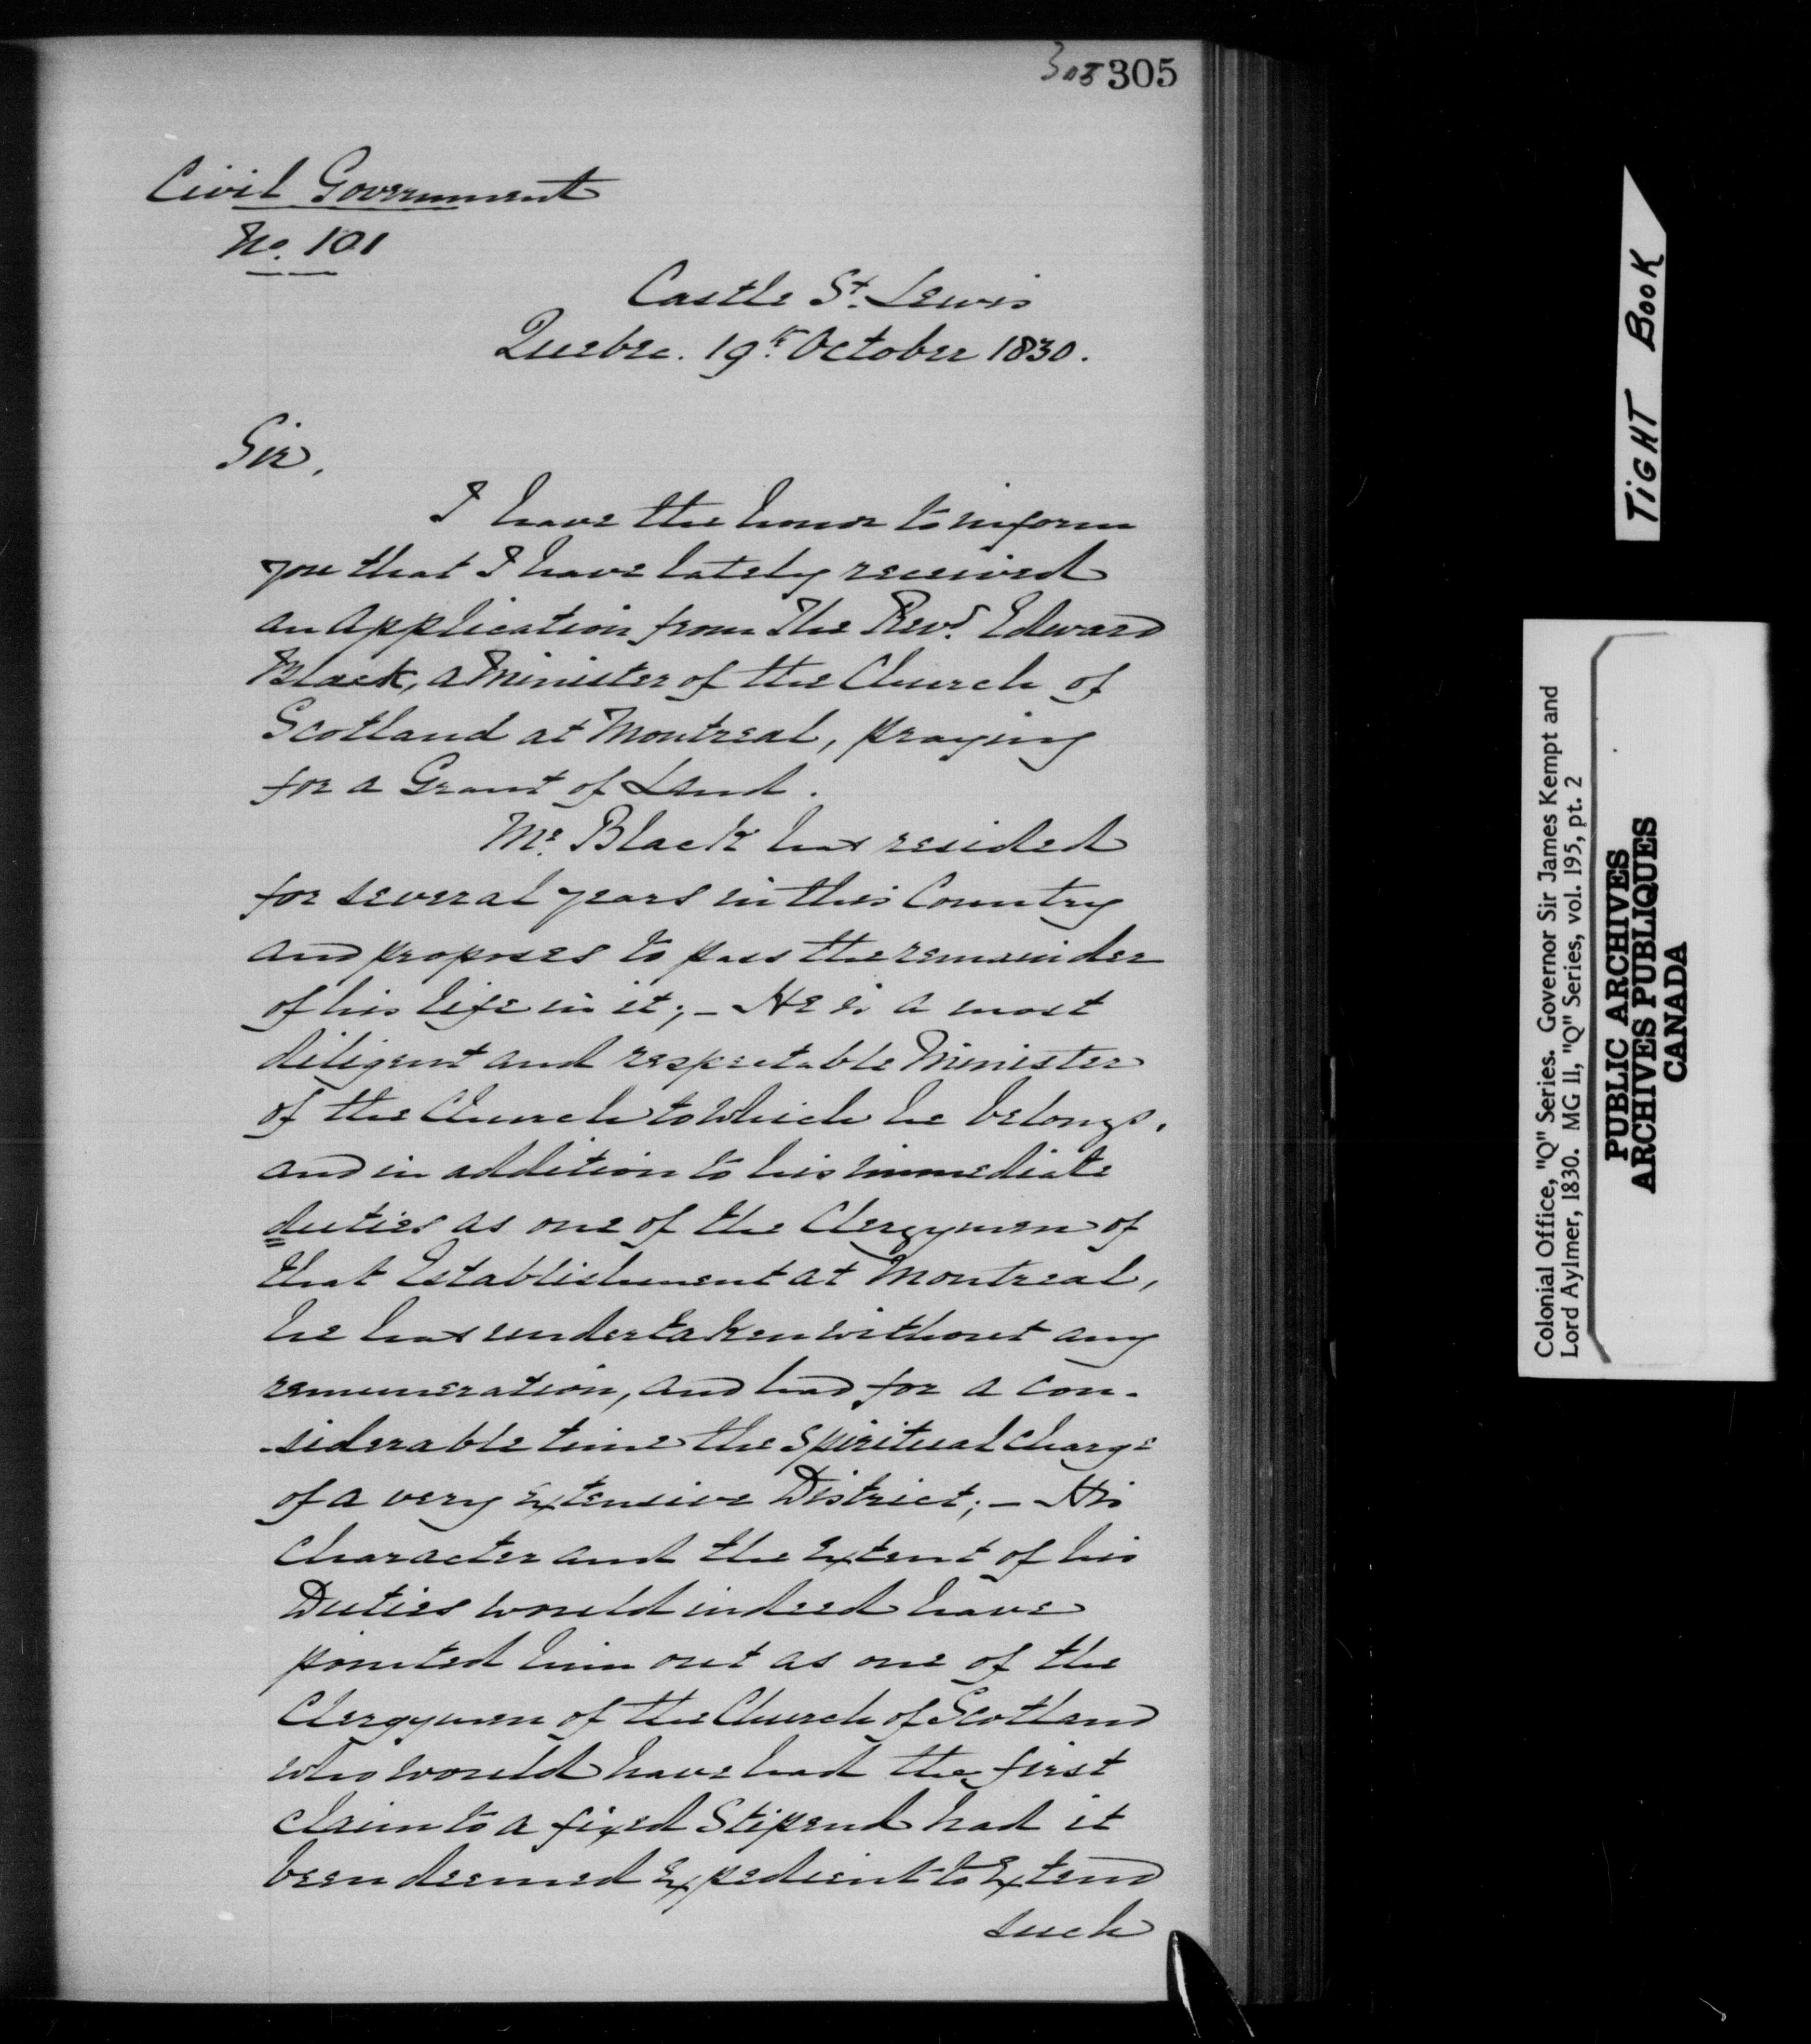 305 305
Civil Government
No. 101
Castle St. Lewis
Quebec. 19th October 1830.
Sir,
I have the honor to inform
you that I have lately received
an application from The Revd. Edward
Black, a Minister of the Church of
Scotland at Montreal, praying
for a Grant of Land.
Mr. Black has resided
for several years in this Country
and proposes to pass the remainder
of his life in it; – He is a most
diligent and respectable Minister
of the Church to which he belongs,
and in addition to his immediate
duties as one of the Clergymen of
that Establishment at Montreal,
he has undertaken without any
remuneration, and had for a con-
-siderable time the Spiritual charge
of a very extensive District; – His
Character and the extent of his
Duties would indeed have
pointed him out as one of the
Clergymen of the Church of Scotland
who would have had the first
claim to a fixed Stipend had it
been deemed expedient to extend
such
TIGHT BOOK
Colonial Office, "Q" Series. Governor Sir James Kempt and
Lord Aylmer, 1830. MG 11, "Q" Series, vol. 195, pt. 2
PUBLIC ARCHIVES
ARCHIVES PUBLIQUES
CANADA